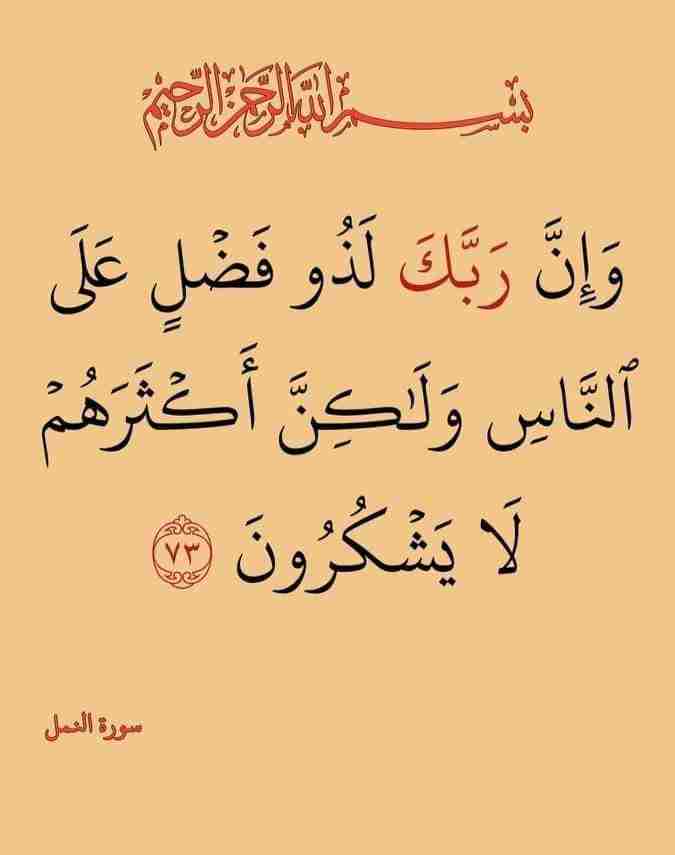 بسم الله الرحمن الرحيم
وَإِنَّ رَبَّكَ لَذُو فَضْلٍ عَلَى
ٱلنَّاسِ وَلَـٰكِنَّ أَكْثَرَهُمْ
لَا يَشْكُرُونَ ٧٣
سورة النمل